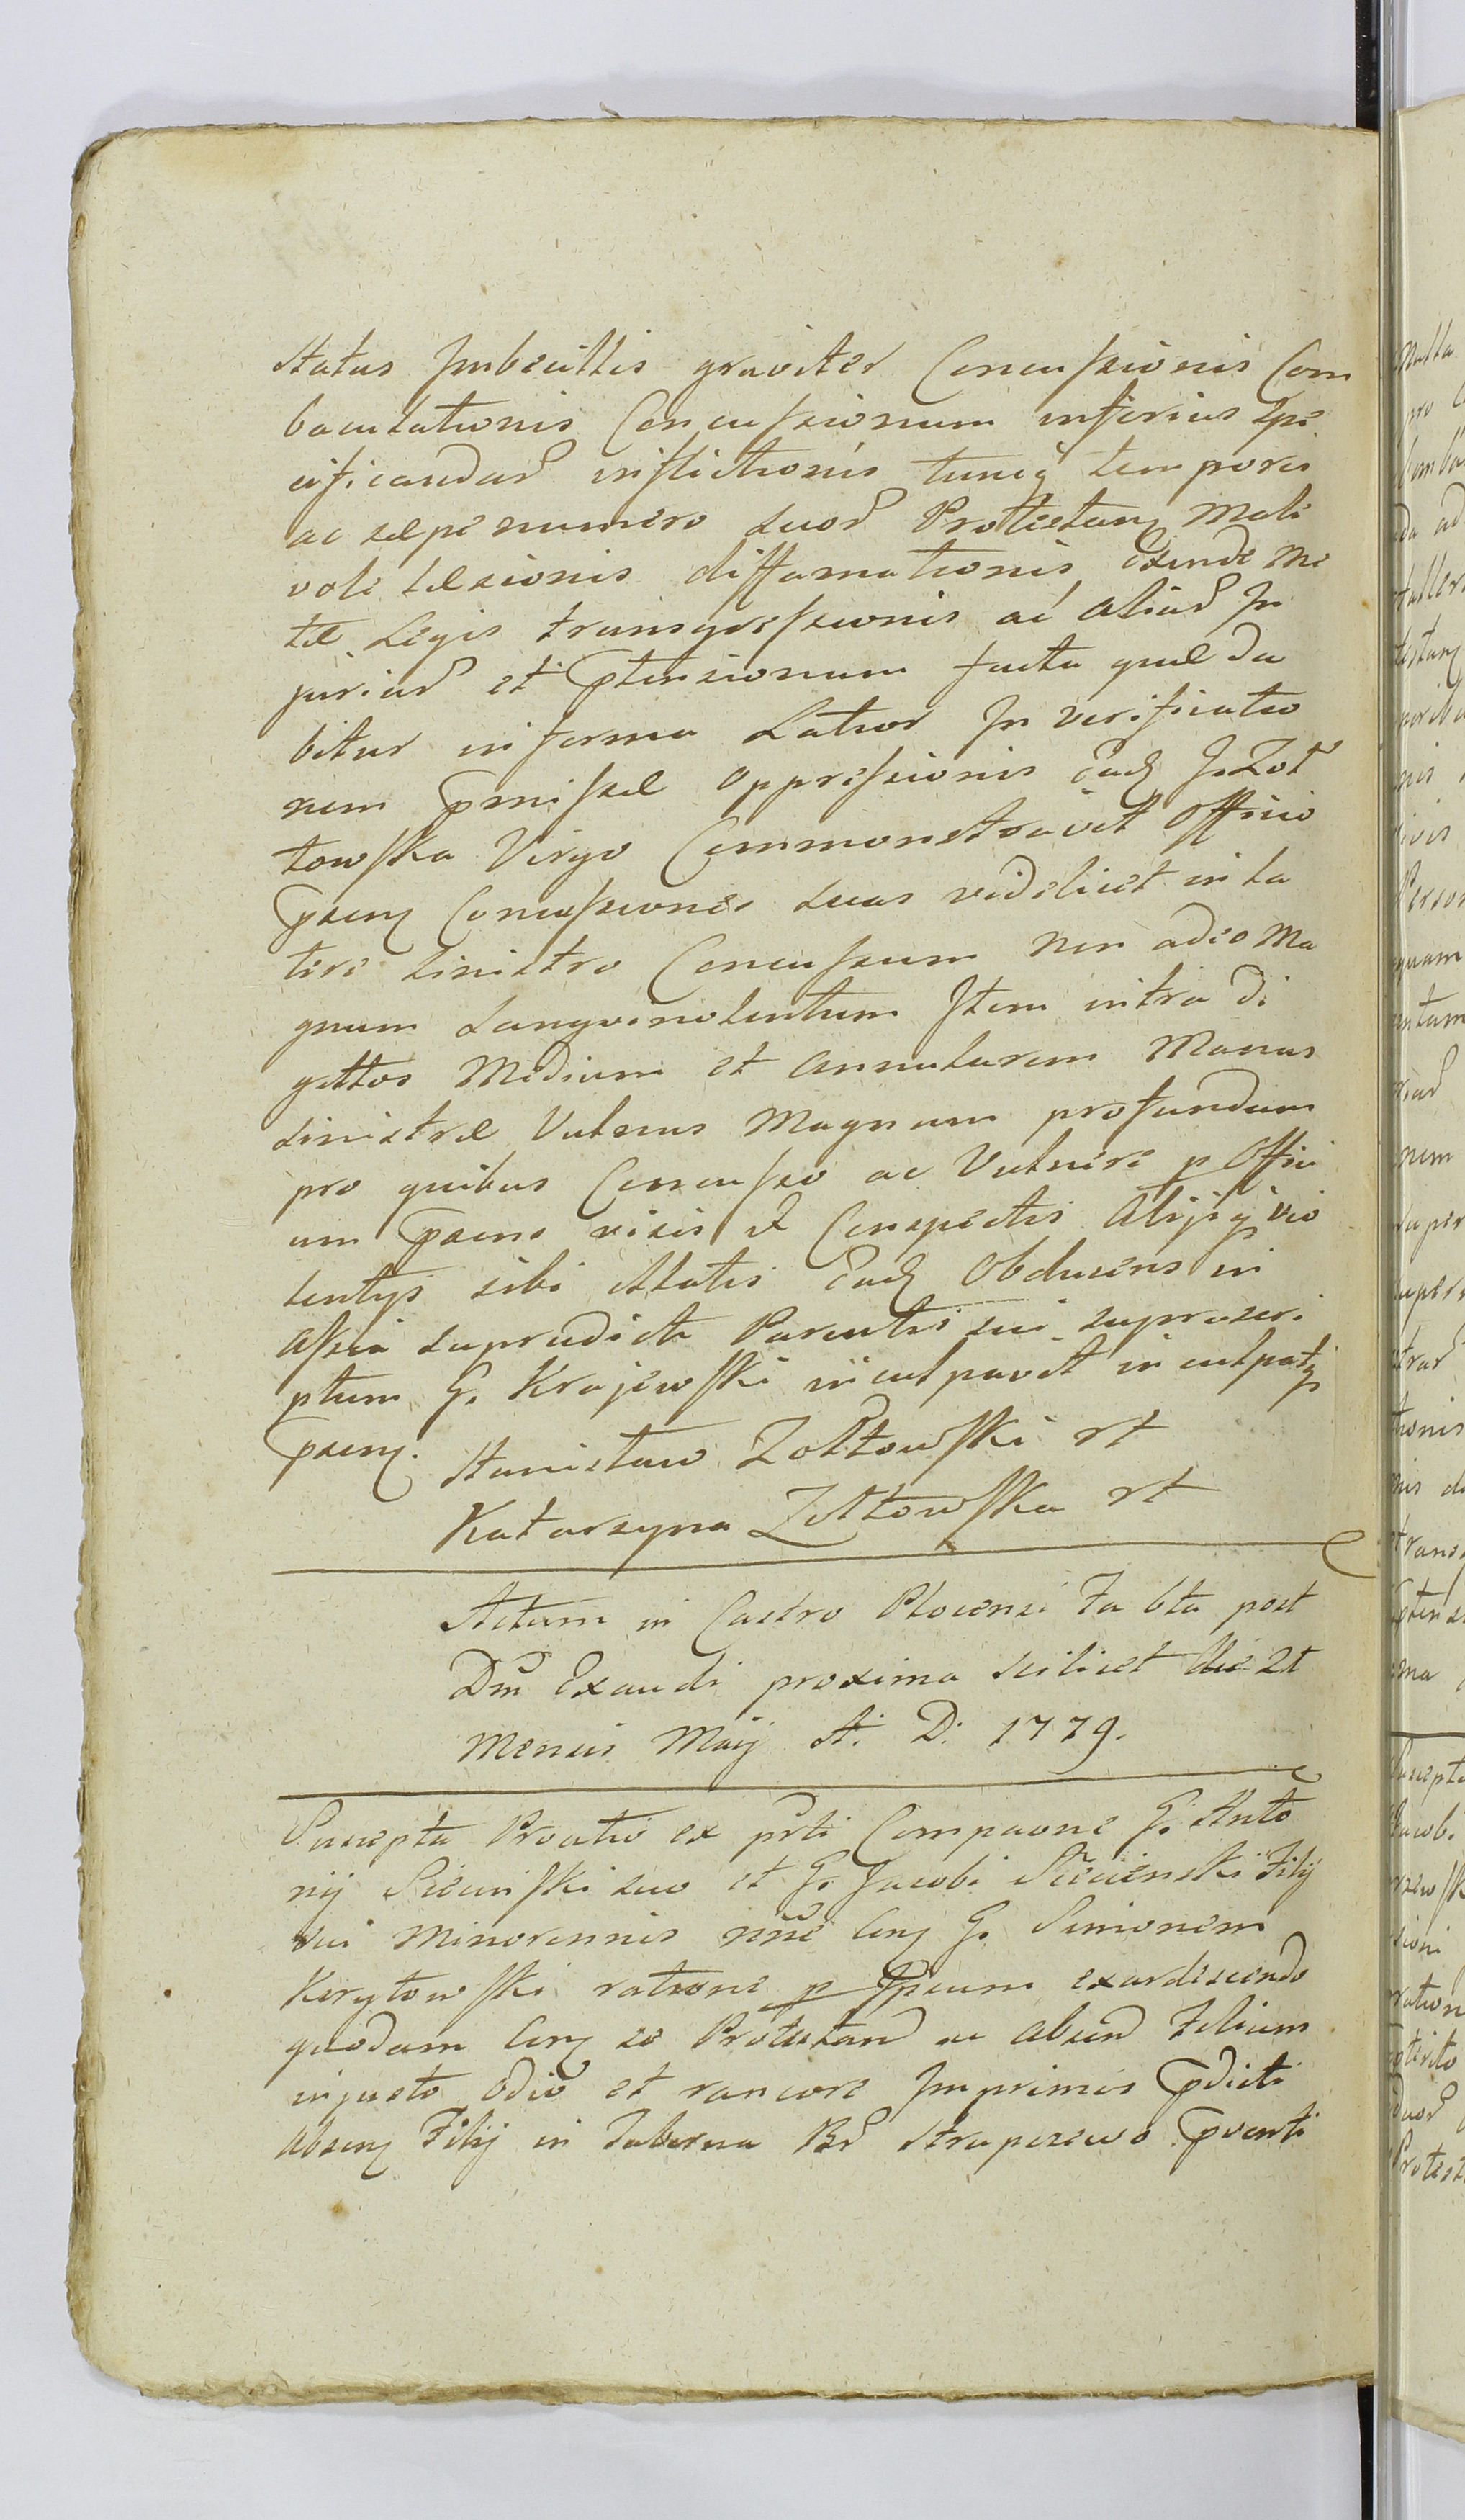 Status Imbecillis graviter Concussionis Com
baculationis Concussionum inferius spe
cificandar inflictionis tuncq tempore
ac sæpenumero suor Protestanz Mali
vole læsionis diffamationis exinde me
tæ Legis transgressionis ac aliar In
juriar et Ptensionum facta quæ da
bitur in forma Latior In verificatio
nem Pmissæ oppressionis Eadz G. Żoł
towska Virgo Commonstravit Officio
Psenz Concussiones suas videlicet in la
tere sinistro Concussum non adeo Ma
gnum Sangvinolentum Item intra di
gittos Medium et annularem Manus
sinistræ Vulnus Magnum profundum
pro quibus Concusso ac Vulnere p Offici
um Psens visis & Conspectis Alijsq vio
lentijs sibi illatis Eadz Obducens in
Assia supradicti Parentis sui suprascri
ptum G. Krajewski inculpavit inculpatqz
Psenz.
Stanisław Żołtowski rt
Katarzyna Żołtowska rt
Actum in Castro Plocensi Fa 6ta post
Dm Exaudi proxima scilicet die 21
Mensis Maij A. D. 1779.
Suscepta Proatio ex prti Compaone G. Anto
nij Siecinski suo et G. Jacobi Siecienski Filij
sui Minorennis nne Cnz G. Simonem
Kerytowski ratione p Ipsum exardescendo
quodam Cnz eo Protestand ac absend Filium
injusto odio et rancore Imprimis Pdicti
Absenz Filij in Taberna Br Strupczewo Pventi